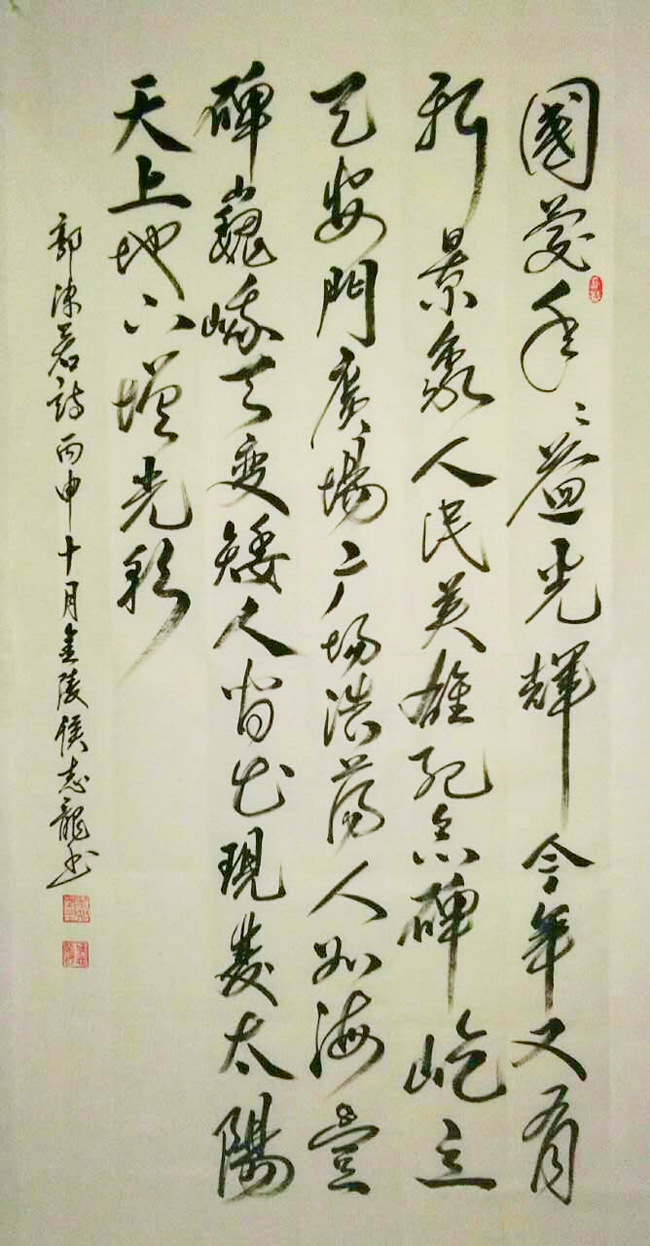 國慶年〻益光輝今年又有
新景象人民英雄紀念碑屹立
天安門廣場广场浩蕩人如海豐
碑巍峨天变矮人皆現太陽
天上地下增光彩
郭沫若詩丙申十月金陵侯志龍书